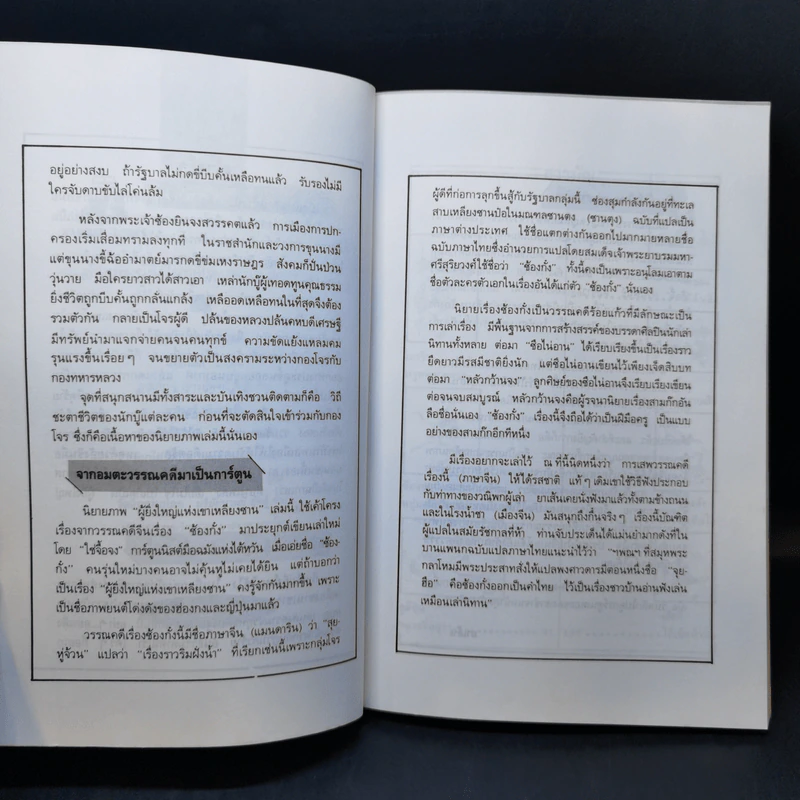 อยู่อย่างสงบ ถ้ารัฐบาลไม่กดขี่บีบคั้นเหลือทนแล้ว รับรองไม่มี
ใครจับดาบขับไล่โค่นล้ม
หลังจากพระเจ้าซ้องยินจงสวรรคตแล้ว การเมืองการปก-
ครองเริ่มเสื่อมทรามลงทุกที ในราชสำนักและวงการขุนนางมี
แต่ขุนนางขี้ฉ้ออำมาตย์มารกดขี่ข่มเหงราษฎร สังคมก็ปั่นป่วน
วุ่นวาย มือใครยาวสาวได้สาวเอา เหล่านักบู๊ผู้เทอดทูนคุณธรรม
ยิ่งชีวิตถูกบีบคั้นถูกกลั่นแกล้ง เหลืออดเหลือทนในที่สุดจึงต้อง
รวมตัวกัน กลายเป็นโจรผู้ดี ปล้นของหลวงปล้นคหบดีเศรษฐี
มีทรัพย์นำมาแจกจ่ายคนจนคนทุกข์ ความขัดแย้งแหลมคม
รุนแรงขึ้นเรื่อยๆ จนขยายตัวเป็นสงครามระหว่างกองโจรกับ
กองทหารหลวง
จุดที่สนุกสนานมีทั้งสาระและบันเทิงชวนติดตามก็คือ วิถี
ชะตาชีวิตของนักบู๊แต่ละคน ก่อนที่จะตัดสินใจเข้าร่วมกับกอง
โจร ซึ่งก็คือเนื้อหาของนิยายภาพเล่มนี้นั่นเอง
จากอมตะวรรณคดีมาเป็นการ์ตูน
นิยายภาพ “ผู้ยิ่งใหญ่แห่งเขาเหลียงซาน” เล่มนี้ ใช้เค้าโครง
เรื่องจากวรรณคดีจีนเรื่อง “ซ้องกั๋ง” มาประยุกต์เขียนเล่าใหม่
โดย “ไช่จื้อจง” การ์ตูนนิสต์มือฉมังแห่งไต้หวัน เมื่อเอ่ยชื่อ “ซ้อง-
กั๋ง” คนรุ่นใหม่บางคนอาจไม่คุ้นหูไม่เคยได้ยิน แต่ถ้าบอกว่า
เป็นเรื่อง “ผู้ยิ่งใหญ่แห่งเขาเหลียงซาน” คงรู้จักกันมากขึ้น เพราะ
เป็นชื่อภาพยนต์โด่งดังของฮ่องกงและญี่ปุ่นมาแล้ว
วรรณคดีเรื่องซ้องกั๋งนี้มีชื่อภาษาจีน (แมนดาริน) ว่า “สุย-
หู่จ้วน” แปลว่า “เรื่องราวริมฝั่งน้ำ” ที่เรียกเช่นนี้เพราะกลุ่มโจร
ผู้ดีที่ก่อการลุกขึ้นสู้กับรัฐบาลกลุ่มนี้ ซ่องสุมกำลังกันอยู่ที่ทะเล
สาบเหลียงซานป๋อในมณฑลซานตง (ซานตุง) ฉบับที่แปลเป็น
ภาษาต่างประเทศ ใช้ชื่อแตกต่างกันออกไปมากมายหลายชื่อ
ฉบับภาษาไทยซึ่งอำนวยการแปลโดยสมเด็จเจ้าพระยาบรมมหา-
ศรีสุริยวงศ์ใช้ชื่อว่า “ซ้องกั๋ง” ทั้งนี้คงเป็นเพราะอนุโลมเอาตาม
ชื่อตัวละครตัวเอกในเรื่องอันได้แก่ตัว “ซ้องกั๋ง” นั่นเอง
นิยายเรื่องซ้องกั๋งเป็นวรรณคดีร้อยแก้วที่มีลักษณะเป็น
การเล่าเรื่อง มีพื้นฐานจากการสร้างสรรค์ของบรรดาศิลปินนักเล่า
นิทานทั้งหลาย ต่อมา “ซือไน่อาน” ได้เรียบเรียงขึ้นเป็นเรื่องราว
ยืดยาวมีรสมีชาติยิ่งนัก แต่ซือไน่อานเขียนไว้เพียงเจ็ดสิบบท
ต่อมา “หลัวกว้นจง” ลูกศิษย์ของซือไน่อานจึงเรียบเรียงเขียน
ต่อจนจบสมบูรณ์ หลัวกว้นจงคือผู้รจนานิยายเรื่องสามก๊กอัน
ลือชื่อนั่นเอง “ซ้องกั๋ง” เรื่องนี้จึงถือได้ว่าเป็นฝีมือครู เป็นแบบ
อย่างของสามก๊กอีกทีหนึ่ง
มีเรื่องอยากจะเล่าไว้ ณ ที่นี้นิดหนึ่งว่า การเสพวรรณคดี
เรื่องนี้ (ภาษาจีน) ให้ได้รสชาติ แท้ๆ เดิมเขาใช้วิธีฟังประกอบ
กับท่าทางของวณิพกผู้เล่า ยาเส้นเคยนั่งฟังมาแล้วทั้งตามข้างถนน
และในโรงน้ำชา (เมืองจีน) มันสนุกถึงกึ๋นจริงๆ เรื่องนี้บัณฑิต
ผู้แปลในสมัยรัชกาลที่ห้า ท่านจับประเด็นได้แม่นยำมากดังที่ใน
บานแพนกฉบับแปลภาษาไทยแนะนำไว้ว่า “ฯพณฯ ที่สมุหพระ
กลาโหมมีพระประสาทสั่งให้แปลพงศาวดารมีตอนหนึ่งชื่อ “จุย-
ฮือ” คือซ้องกั๋งออกเป็นคำไทย ไว้เป็นเรื่องชาวบ้านอ่านฟังเล่น
เหมือนเล่านิทาน”